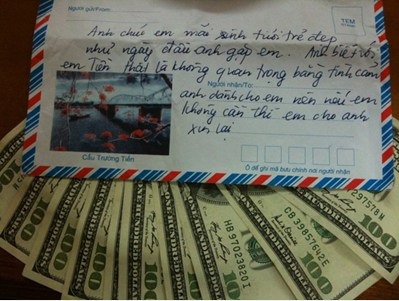 Người gửi/From:
TEM
Anh chúc em mãi xinh tươi trẻ đẹp
như ngày đầu anh gặp em. Anh biết với
em Tiền thật là không quan trọng bằng tình cảm
Người nhận/To:
anh dành cho em nên nếu em
không cần thì em cho anh
xin lại
Cầu Trường Tiền
Ô để ghi mã bưu chính nơi người nhận
HB 97023821
CB 39857642 E
297578 M
100